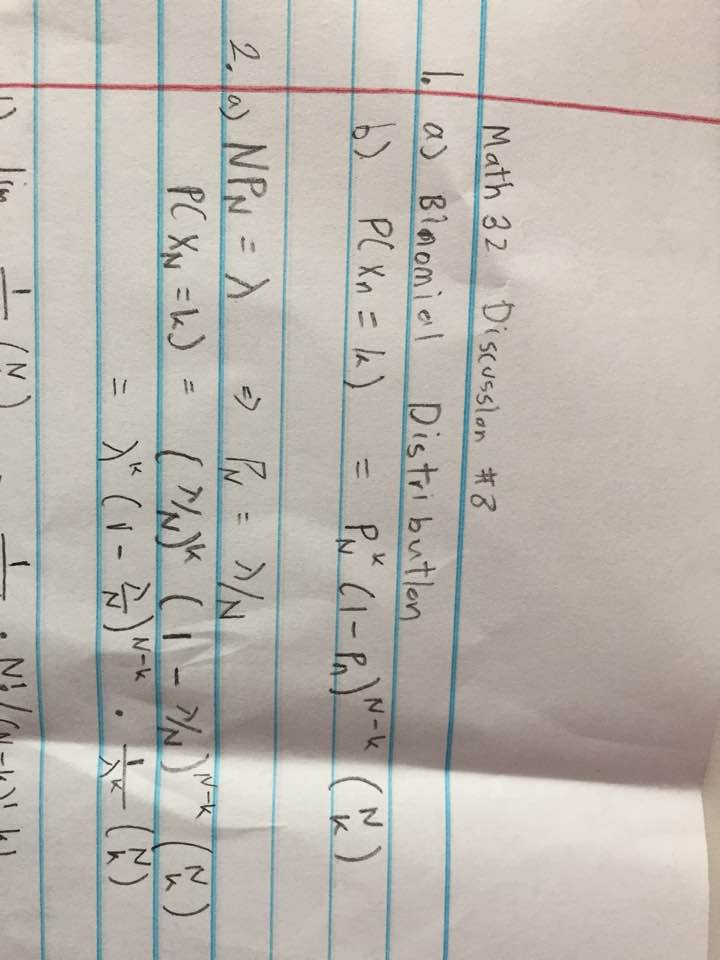 Math 32 Discussion #8
1. a) Binomial Distribution
b) P(Xn = k) = P_N^k (1-Pn)^{N-k} (N k)
2. a) NP_N = λ ⇒ P_N = λ/N
P(X_N = k) = (λ/N)^k (1 - λ/N)^{N-k} (N k)
= λ^k (1 - λ/N)^{N-k} · 1/λ^k (N k)
b) lim 1 (N = 1 · N!/(N-k)! k!